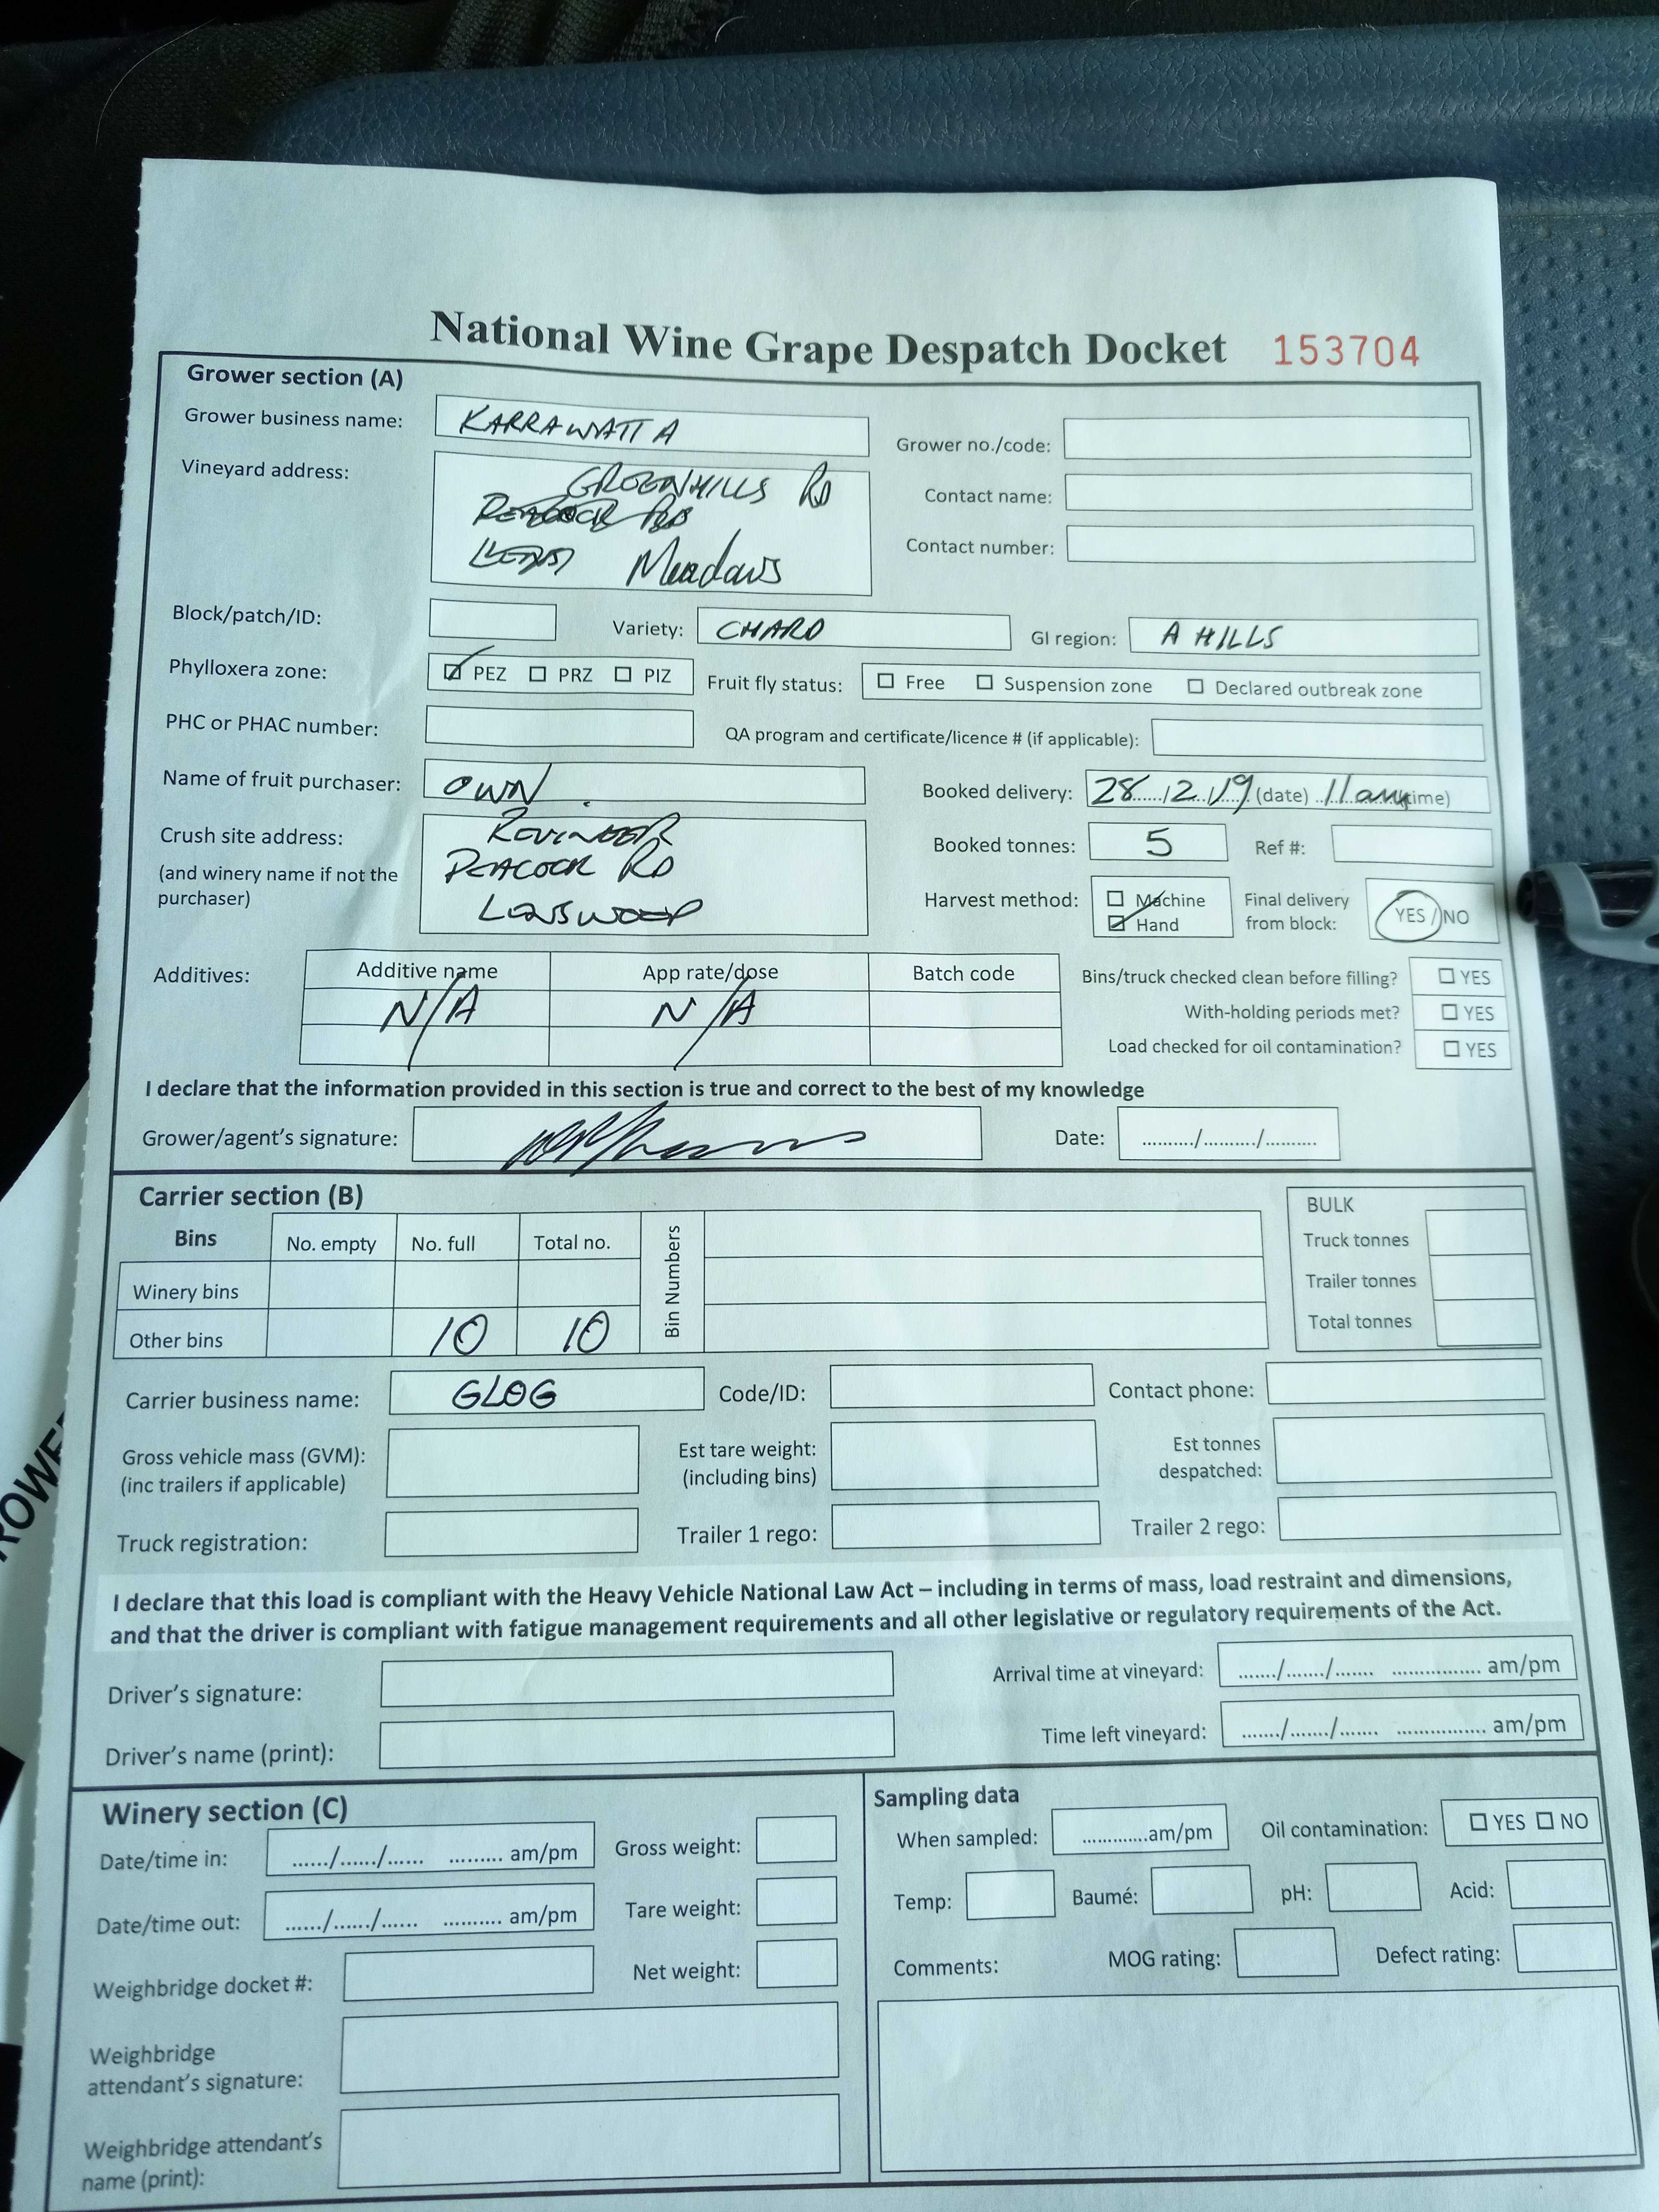 National Wine Grape Despatch Docket 153704
Grower section (A)
Grower business name: KARRAWATTA
Grower no./code:
Vineyard address: GREENHILLS RD
PEACOCK RD
LENS Meadows
Contact name:
Contact number:
Block/patch/ID: Variety: CHARD GI region: A HILLS
Phylloxera zone: ☑ PEZ ☐ PRZ ☐ PIZ Fruit fly status: ☐ Free ☐ Suspension zone ☐ Declared outbreak zone
PHC or PHAC number: QA program and certificate/licence # (if applicable):
Name of fruit purchaser: OWN. Booked delivery: 28/12/19 (date) 11am (time)
Crush site address:
(and winery name if not the
purchaser)
PEACOCK RD
LENSWOOD
Booked tonnes: 5 Ref #:
Harvest method: ☐ Machine
☑ Hand
Final delivery
from block: YES / NO
Additives: Additive name App rate/dose Batch code
N/A N/A
Bins/truck checked clean before filling? ☐ YES
With-holding periods met? ☐ YES
Load checked for oil contamination? ☐ YES
I declare that the information provided in this section is true and correct to the best of my knowledge
Grower/agent's signature: Date: ........../........../..........
Carrier section (B)
Bins No. empty No. full Total no. Bin Numbers
Winery bins
Other bins 10 10
BULK
Truck tonnes
Trailer tonnes
Total tonnes
Carrier business name: GLOG Code/ID: Contact phone:
Gross vehicle mass (GVM):
(inc trailers if applicable)
Est tare weight:
(including bins)
Est tonnes
despatched:
Truck registration: Trailer 1 rego: Trailer 2 rego:
I declare that this load is compliant with the Heavy Vehicle National Law Act – including in terms of mass, load restraint and dimensions,
and that the driver is compliant with fatigue management requirements and all other legislative or regulatory requirements of the Act.
Driver's signature: Arrival time at vineyard: ......./......./....... ................ am/pm
Driver's name (print): Time left vineyard: ......./......./....... ................ am/pm
Winery section (C)
Date/time in: ....../....../...... ......... am/pm Gross weight:
Date/time out: ....../....../...... .......... am/pm Tare weight:
Weighbridge docket #: Net weight:
Weighbridge
attendant's signature:
Weighbridge attendant's
name (print):
Sampling data
When sampled: .............am/pm Oil contamination: ☐ YES ☐ NO
Temp: Baumé: pH: Acid:
Comments: MOG rating: Defect rating: